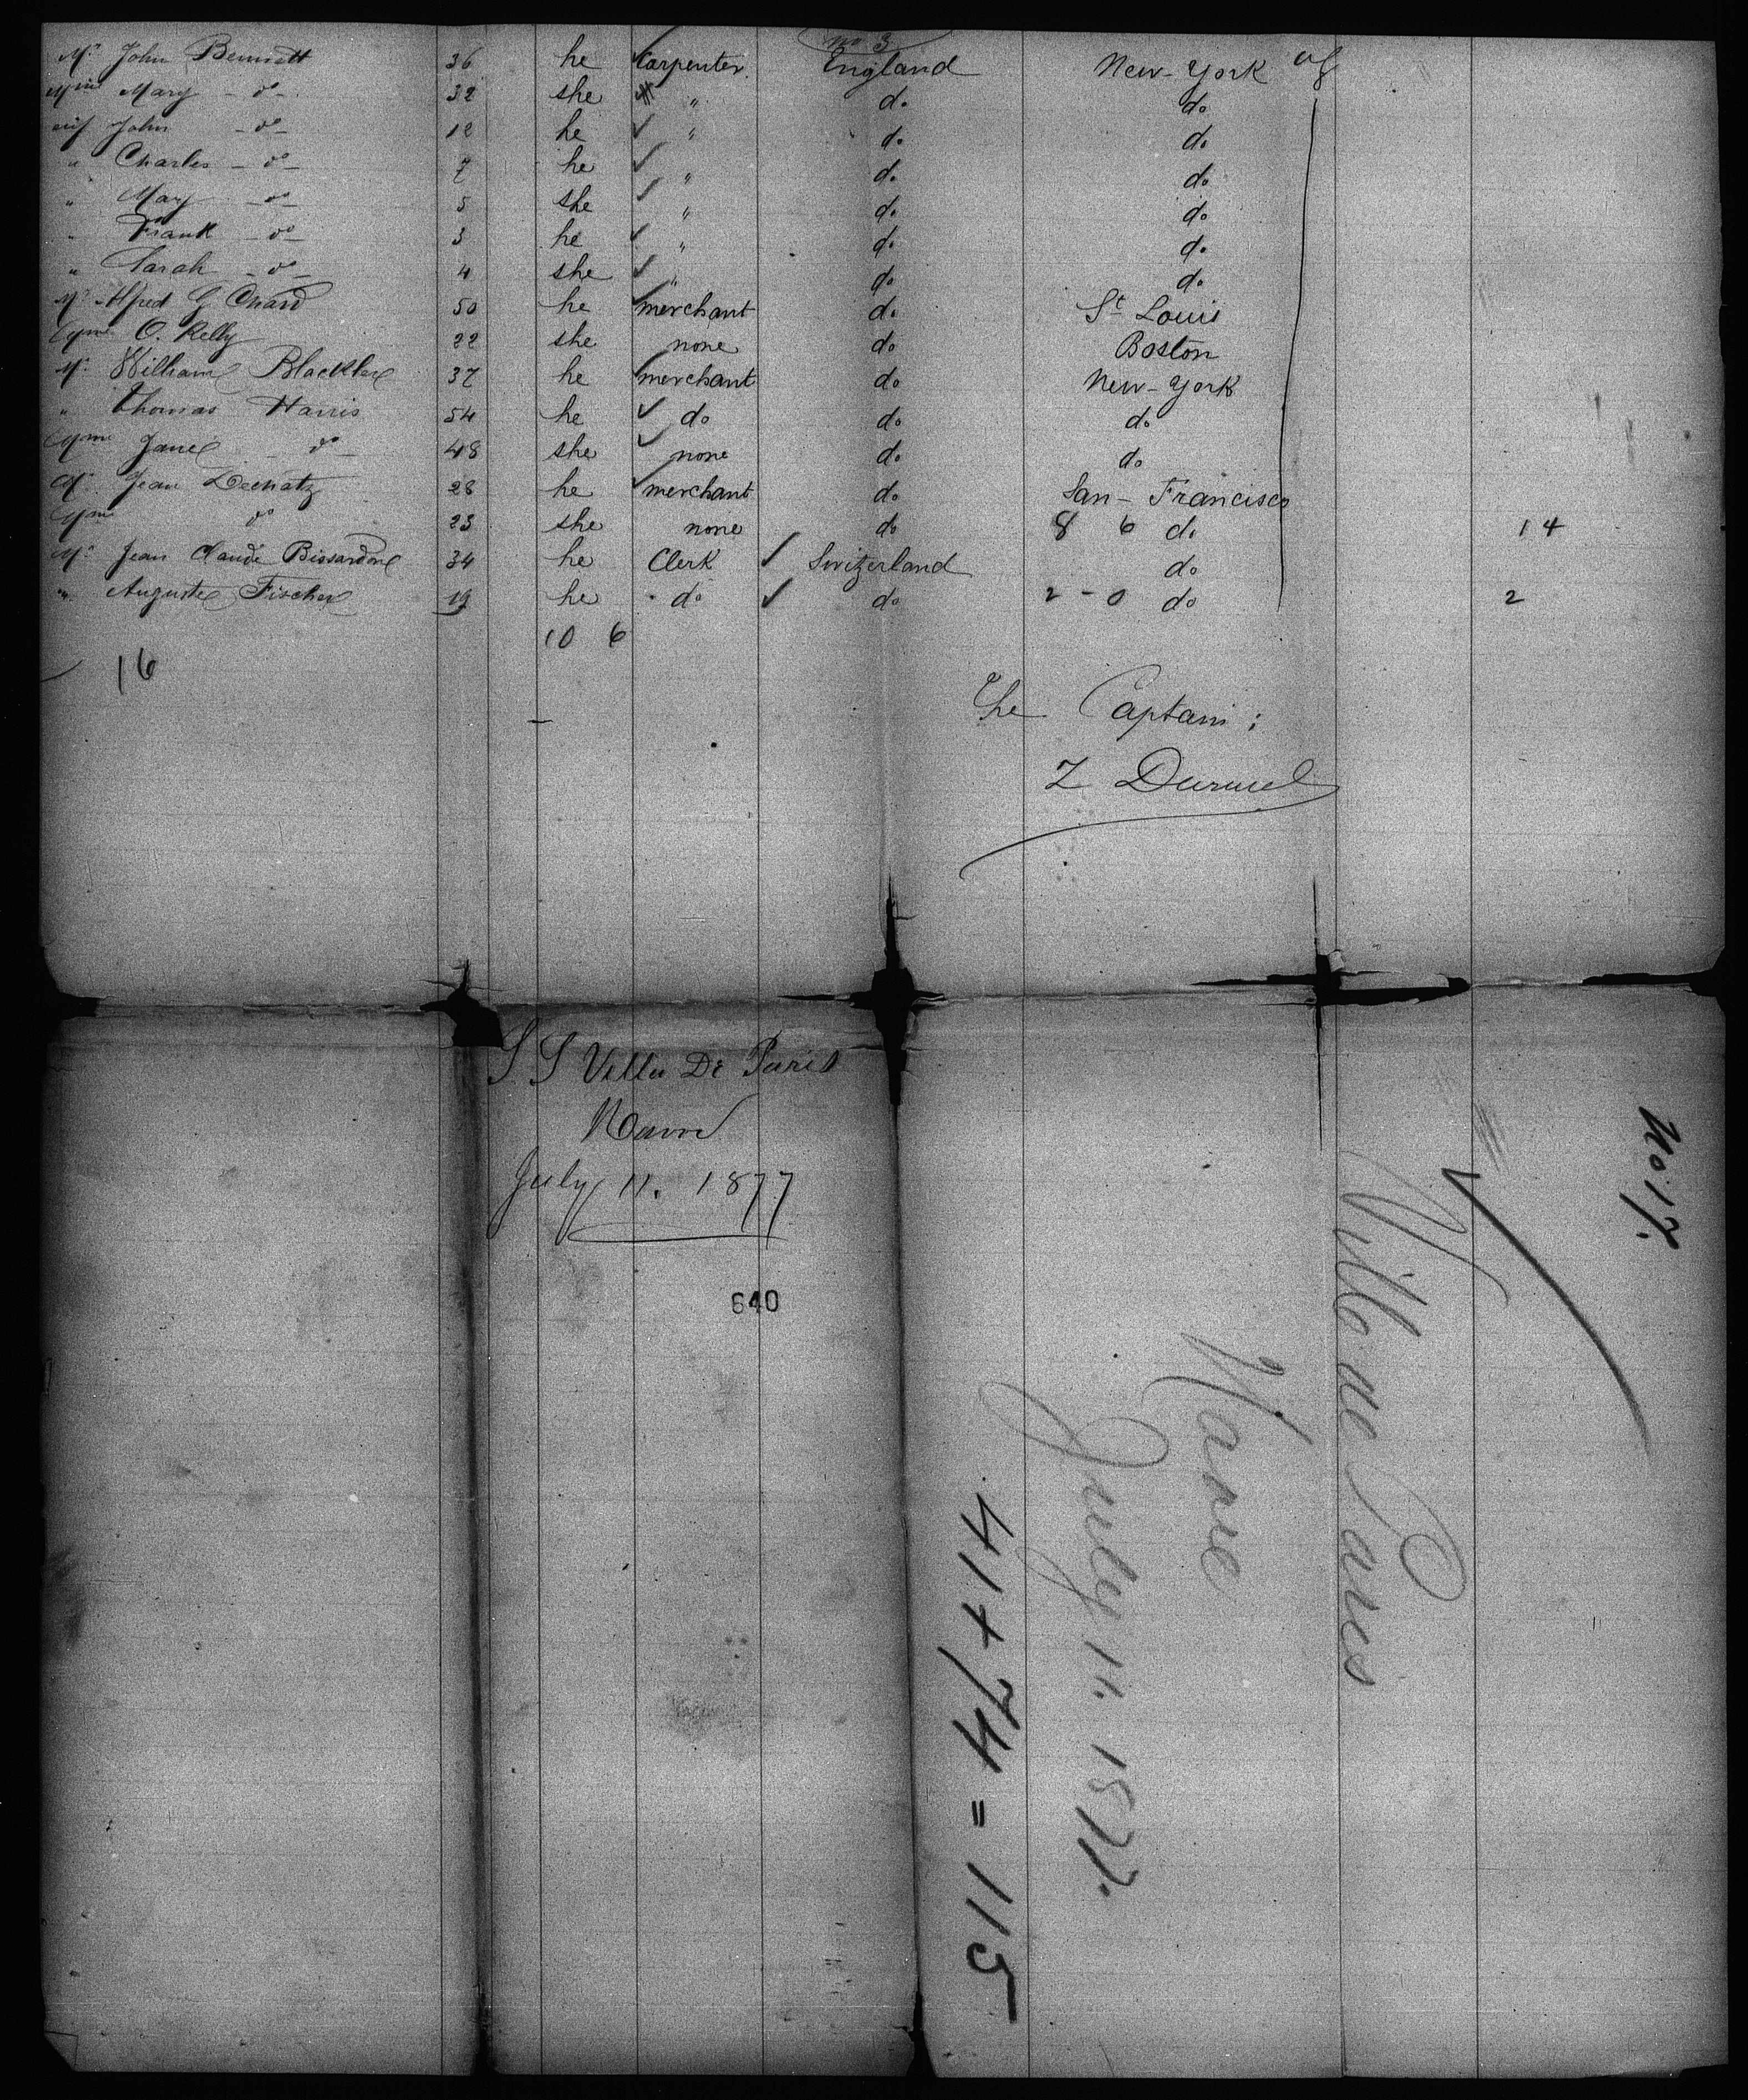 no 3
Mr John Bennett 36 he Carpenter England New-York
Mme Mary - do - 32 she " do do
John - do - 12 he " do do
" Charles - do - 7 he " do do
" Mary - do - 5 she " do do
" Frank - do - 3 he " do do
" Sarah - do - 4 she " do do
Mr Alfred G Chard 50 he merchant do St Louis
Mme O. Kelly 22 she none do Boston
Mr William 37 he merchant do New-York
" Thomas Harris 54 he do do do
Mme Jane - do - 48 she none do do
Mr Jean 28 he merchant do San-Francisco
Mme do 23 she none do 8 6 do 14
Mr Jean Claude 34 he Clerk Switzerland do
" Auguste Fischer 19 he do do 2-0 do 2
10 6
16
The Captain:
S S Ville De Paris
Havre
July 11. 1877
640
No 17.
Ville de Paris
Havre
July 11. 1877.
41+74=115